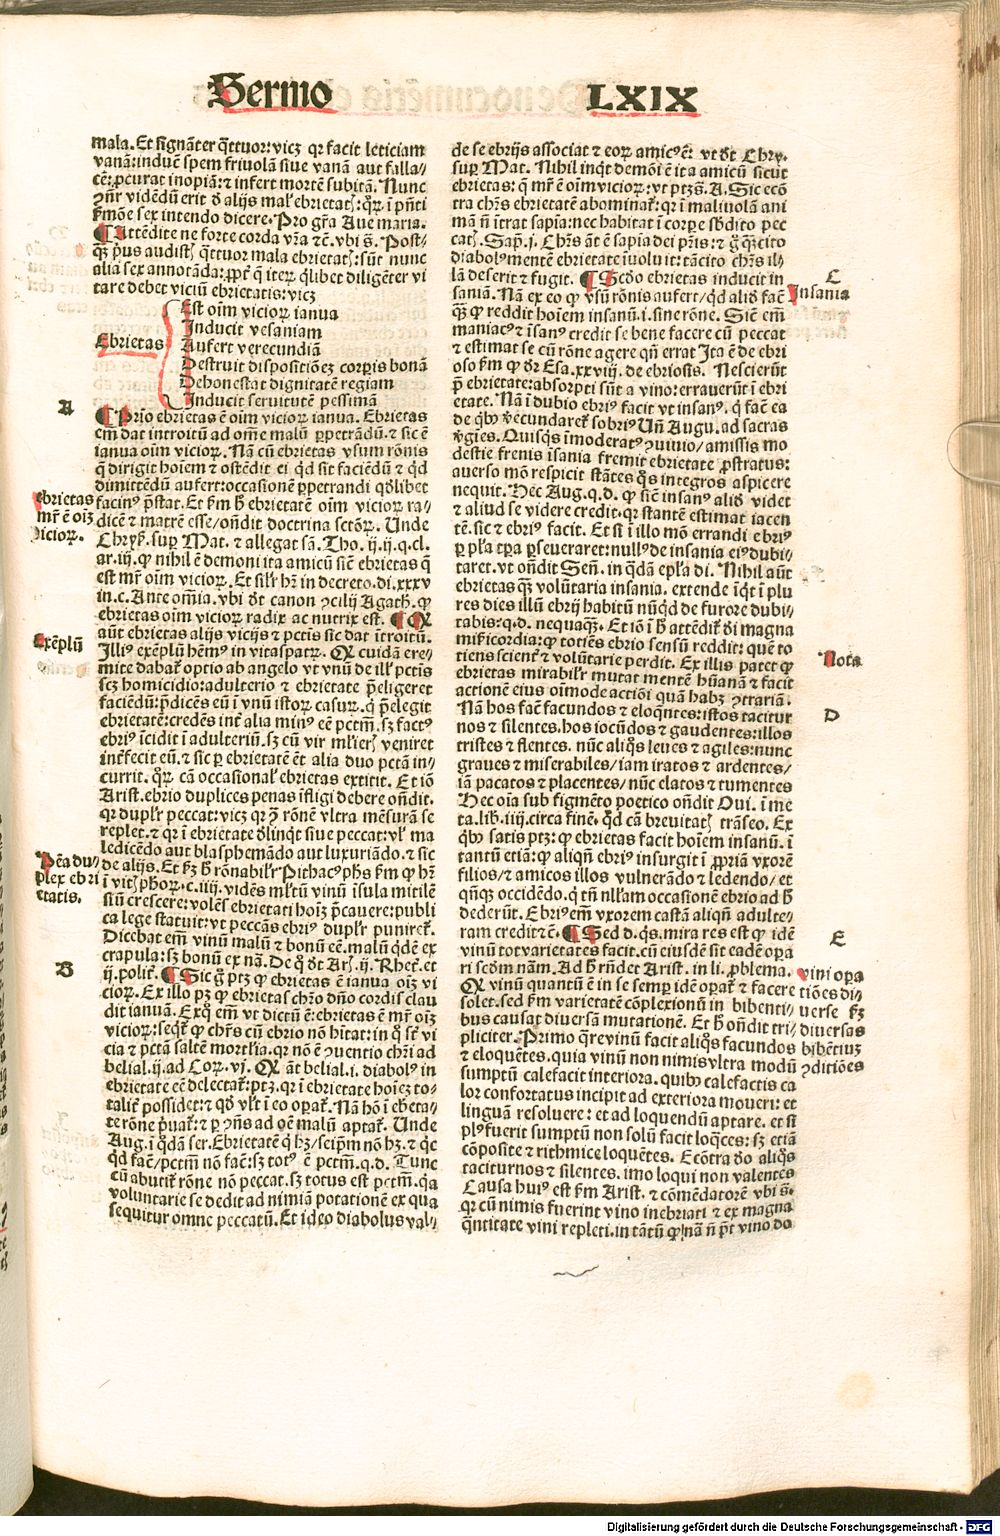 Sermo LXIX
mala. Et signāter q̄ttuor: vicꝫ qꝛ facit leticiam
vanā: induc̄ spem friuolā siue vanā aut falla⸗
cē: ꝓcurat inopiā: ⁊ infert mortē subitā. Nunc
ꝯñr vidēdū erit ꝺ alijs mal̕ ebrietat;: qꝛ̄ ī pn̄ti
ẜmōe sex intendo dicere. Pro gr̄a Aue maria.
¶ Attēdite ne forte corda vr̄a ⁊c̄. vbi s̄. Post⸗
qꝫ pͥus audistꝭ q̄ttuor mala ebrietatꝭ: sūt nunc
alia sex annotāda: ꝓpt̕ q̄ iteꝝ q̄libet diligēter vi
tare debet viciū ebrietatis: vicꝫ
Ebrietas
Est oīm vicioꝝ ianua
Inducit vesaniam
Aufert verecundiā
Destruit dispositiōeꝫ corꝑis bonā
Dehonestat dignitatē regiam
Inducit seruitutē pessimā
A
¶ Prīo ebrietas ē oīm vicioꝝ ianua. Ebrietas
em̄ dat introitū ad om̄e malū ꝑpetrādū. ⁊ sic ē
ianua oīm vicioꝝ. Nā cū ebrietas vsum rōnis
q̄ dirigit hoīem ⁊ ostēdit ei qd̄ sit faciēdū ⁊ qd̄
dimittēdū aufert: occasionē ꝑpetrandi qd̄libet
ebrietas
mr̄ ē oīꝫ
vicioꝝ.
facinꝰ p̄stat. Et ẜm h̄ ebrietatē oīm vicioꝝ ra⸗
dicē ⁊ matrē esse/ oñdit doctrina sctōꝝ. Unde
Chryẜ. suꝑ Mat. ⁊ allegat sā. Tho. ij. ij. q. cl.
ar. iij. ꝙ nihil ē demoni ita amicū sicē ebrietas q̄
est mr̄ oīm vicioꝝ. Et sil̕r hr̄ in decreto. di. xxxv
in. c. Ante om̄ia. vbi dt̄ canon ꝯcilij Agath̕. ꝙ
ebrietas oīm vicioꝝ radix ac nutrix est. ¶ Q
aūt ebrietas alijs vicijs ⁊ pctīs sic dat ītroitū.
Exēplū
Illiꝰ exēplū hēmꝰ in vitaspatꝝ. Q cuidā ere⸗
mite dabat̕ optio ab angelo vt vnū de ill̕ pctīs
scꝫ homicidio: adulterio ⁊ ebrietate p̄eligeret
faciēdū: p̄dicēs eū ī vnū istoꝝ casuꝝ. q̇ p̄elegit
ebrietatē: credēs int̕ alia minꝰ eē pctm̄. sꝫ factꝰ
ebriꝰ īcidit ī adulteriū. sꝫ cū vir mlierꝭ veniret
int̕fecit eū. ⁊ sic ꝑ ebrietatē ēt alia duo pctā in⸗
currit. qꝛ̄ cā occasional̕ ebrietas extitit. Et iō
Arist. ebrio duplices penas īfligi debere oñdit.
qꝛ dupl̕r peccat: vicꝫ qꝛ ꝯ̄ rōnē vltra mēsurā se
replet. ⁊ qꝛ ī ebrietate ꝺlinqt̄ siue peccat: vl̕ ma
ledicēdo aut blasphemādo aut luxuriādo. ⁊ sic
Pēa du⸗
plex ebri
etatis.
de alijs. Et ẜꝫ h̄ rōnabil̕r Pithacꝰ phs̄ ẜm ꝙ hr̄
ī vitꝭ phoꝝ. c. iiij. vidēs ml̕tū vinū īsula mitilē
siū crescere: volēs ebrietati hoīꝫ p̄cauere: publi
ca lege statuit: vt peccās ebriꝰ dupl̕r puniret̕.
Dicebat em̄ vinū malū ⁊ bonū eē. malū qdē ex
crapula: sꝫ bonū ex nā. De q̇ dt̄ Arꝭ. ij. Rhet̕. et
B
ij. polit̕. ¶ Sic g̊ ptꝫ ꝙ ebrietas ē ianua oīꝫ vi
cioꝝ. Ex illo pꝫ ꝙ ebrietas chrō dn̄o cordis clau
dit ianuā. Exq̇ em̄ vt dictū ē: ebrietas ē mr̄ oīꝫ
vicioꝝ: seqt̕ ꝙ chr̄s cū ebrio nō hītat: in q̇ st̄ vi
cia ⁊ pctā saltē mortl̕ia. qꝛ nō ē ꝯuentio chr̄i ad
belial. ij. ad Coꝝ. vj. Q āt belial. i. diabolꝰ in
ebrietate eē delectat̕: ptꝫ. qꝛ ī ebrietate hoīeꝫ to⸗
talit̕ possidet: ⁊ qd̄ vlt̄ ī eo oꝑat̕. Nā hō ī ebeta⸗
te rōne p̄uat̕: ⁊ ꝑ ꝯn̄s ad oē malū aptat̕. Unde
Aug. ī q̄dā ser. Ebrietatē q̇ hꝫ/ seip̄m nō hꝫ. ⁊ qc̄
qd̄ faē/ pctm̄ nō faē: sꝫ totꝰ ē pctm̄. q.d. Tunc
cū abutit̕ rōne nō peccat. sꝫ totus est pctm̄. qa
voluntarie se dedit ad nimiā potationē ex qua
sequitur omne peccatū. Et ideo diabolus val⸗
de se ebrijs associat ⁊ eoꝝ amicꝰ ē: vt dt̄ Chry.
suꝑ Mat. Nihil inqt̄ demōi ē ita amicū sicut
ebrietas: q̄ mr̄ ē oīm vicioꝝ: vt ptꝫ s̄. A. Sic ecō
tra chr̄s ebrietatē abominat̕: qꝛ ī maliuolā ani
mā n̄ ītrat sapīa: nec habitat ī corꝑe sb̄dito pec
catꝭ. Sap̄. j. Chr̄s āt ē sapīa dei pr̄is: ⁊ g̊ q̄ꝫcito
diabolꝰ mentē ebrietate īuoluit: tācito chr̄s il⸗
lā deserit ⁊ fugit. ¶ Scd̄o ebrietas inducit in
C
Insania
saniā. Nā ex eo ꝙ vsū rōnis aufert/ qd̄ aliḋ faē
qꝫ ꝙ reddit hoīem insanū. i. sine rōne. Sicē em̄
maniacꝰ ⁊ īsanꝰ credit se bene facere cū peccat
⁊ estimat se cū rōne agere qn̄ errat Ita ē de ebri
oso ẜm ꝙ dr̄ Esa. xxviij. de ebriosis. Nescierūt
p̄ ebrietate: absorpti sūt a vino: errauerūt ī ebri
etate. Nā ī dubio ebriꝰ facit vt insanꝰ. q̇ faē ea
de qbꝰ v̄ecundaret̕ sobriꝰ Uñ Augu. ad sacras
v̄gīes. Quisqs īmoderatꝰ ꝯuiuio/ amissis mo
destie frenis īsania fremit ebrietate ꝓstratus:
auerso mōe respicit stātes qs̄ integros aspicere
nequit. Hec Aug. q.d. ꝙ sicē insanꝰ aliḋ videt
⁊ aliud se videre credit. qꝛ stantē estimat iacen
tē. sic ⁊ ebriꝰ facit. Et si ī illo mō errandi ebriꝰ
ꝑ pl̕a tꝑa ꝑseueraret: nullꝰ de insania eiꝰ dubi⸗
taret. vt oñdit Señ. in q̄dā epl̕a di. Nihil aūt
ebrietas qꝫ volūtaria insania. extende īqt̄ ī plu
res dies illū ebrij habitū nūqd de furore dubi⸗
tabis: q.d. nequaqꝫ. Et iō ī h̄ attēdit̕ ꝺi magna
mīẜicordia: ꝙ totiēs ebrio sensū reddit: quē to
tiens scient̕ ⁊ volūtarie perdit. Ex illis patet ꝙ
Nota
ebrietas mirabil̕r mutat mentē hūanā ⁊ facit
actionē eius oīmode actiōi quā habꝫ ꝯtrariā.
D
Nā hos faē facundos ⁊ eloqn̄tes: istos tacitur
nos ⁊ silentes. hos iocūdos ⁊ gaudentes: illos
tristes ⁊ flentes. nūc aliqs leues ⁊ agiles: nunc
graues ⁊ miserabiles/ iam iratos ⁊ ardentes/
iā pacatos ⁊ placentes/ nūc elatos ⁊ tumentes
Hec oīa sub figmēto poetico oñdit Oui. ī me
ta. lib̕. iiij. circa finē. qd̄ cā breuitatꝭ trāseo. Ex
qbꝰ satis ptꝫ: ꝙ ebrietas facit hoīem insanū. ī
tantū etiā: ꝙ aliqn̄ ebriꝰ insurgit ī ꝓpriā vxorē
filios/ ⁊ amicos illos vulnerādo ⁊ ledendo/ et
qn̄qꝫ occidēdo. q̇ tn̄ nllam occasionē ebrio ad h̄
dederūt. Ebriꝰ em̄ vxorem castā aliqn̄ adulte⸗
ram credit ⁊c̄. ¶ Sed d. qs. mira res est ꝙ idē
E
vinū tot varietates facit. cū eiusdē sit eadē oꝑa
vini oꝑa
tiōes di⸗
uerse ẜꝫ
diuersas
bibētiuꝫ
ꝯditiōes
ri scd̄m nām. Ad h̄ rn̄det Arist. in li. ꝓblema.
Q vinū quantū ē in se semꝑ idē oꝑat̕ ⁊ facere
solet. sed ẜm varietatē cōplexionū in bibenti⸗
bus causat diuersā mutationē. Et h̄ oñdit tri⸗
pliciter. Primo q̄re vinū facit aliqs facundos
⁊ eloquētes. quia vinū non nimis vltra modū
sumptū calefacit interiora. quibꝰ calefactis ca
lor confortatus incipit ad exteriora moueri: et
linguā resoluere: et ad loquendū aptare. et si
plꝰ fuerit sumptū non solū facit loqc̄es: sꝫ etiā
cōposite ⁊ rithmice loquētes. Ecōtra ꝺo aliqs
taciturnos ⁊ silentes. imo loqui non valentes
Causa huiꝰ est ẜm Arist. ⁊ cōmēdatorē vbi s̄.
qꝛ cū nimis fuerint vino inebriati ⁊ ex magna
q̄ntitate vini repleti. in tātū ꝙ nā n̄ pt̄ vino do
Digitalisierung gefördert durch die Deutsche Forschungsgemeinschaft - DFG